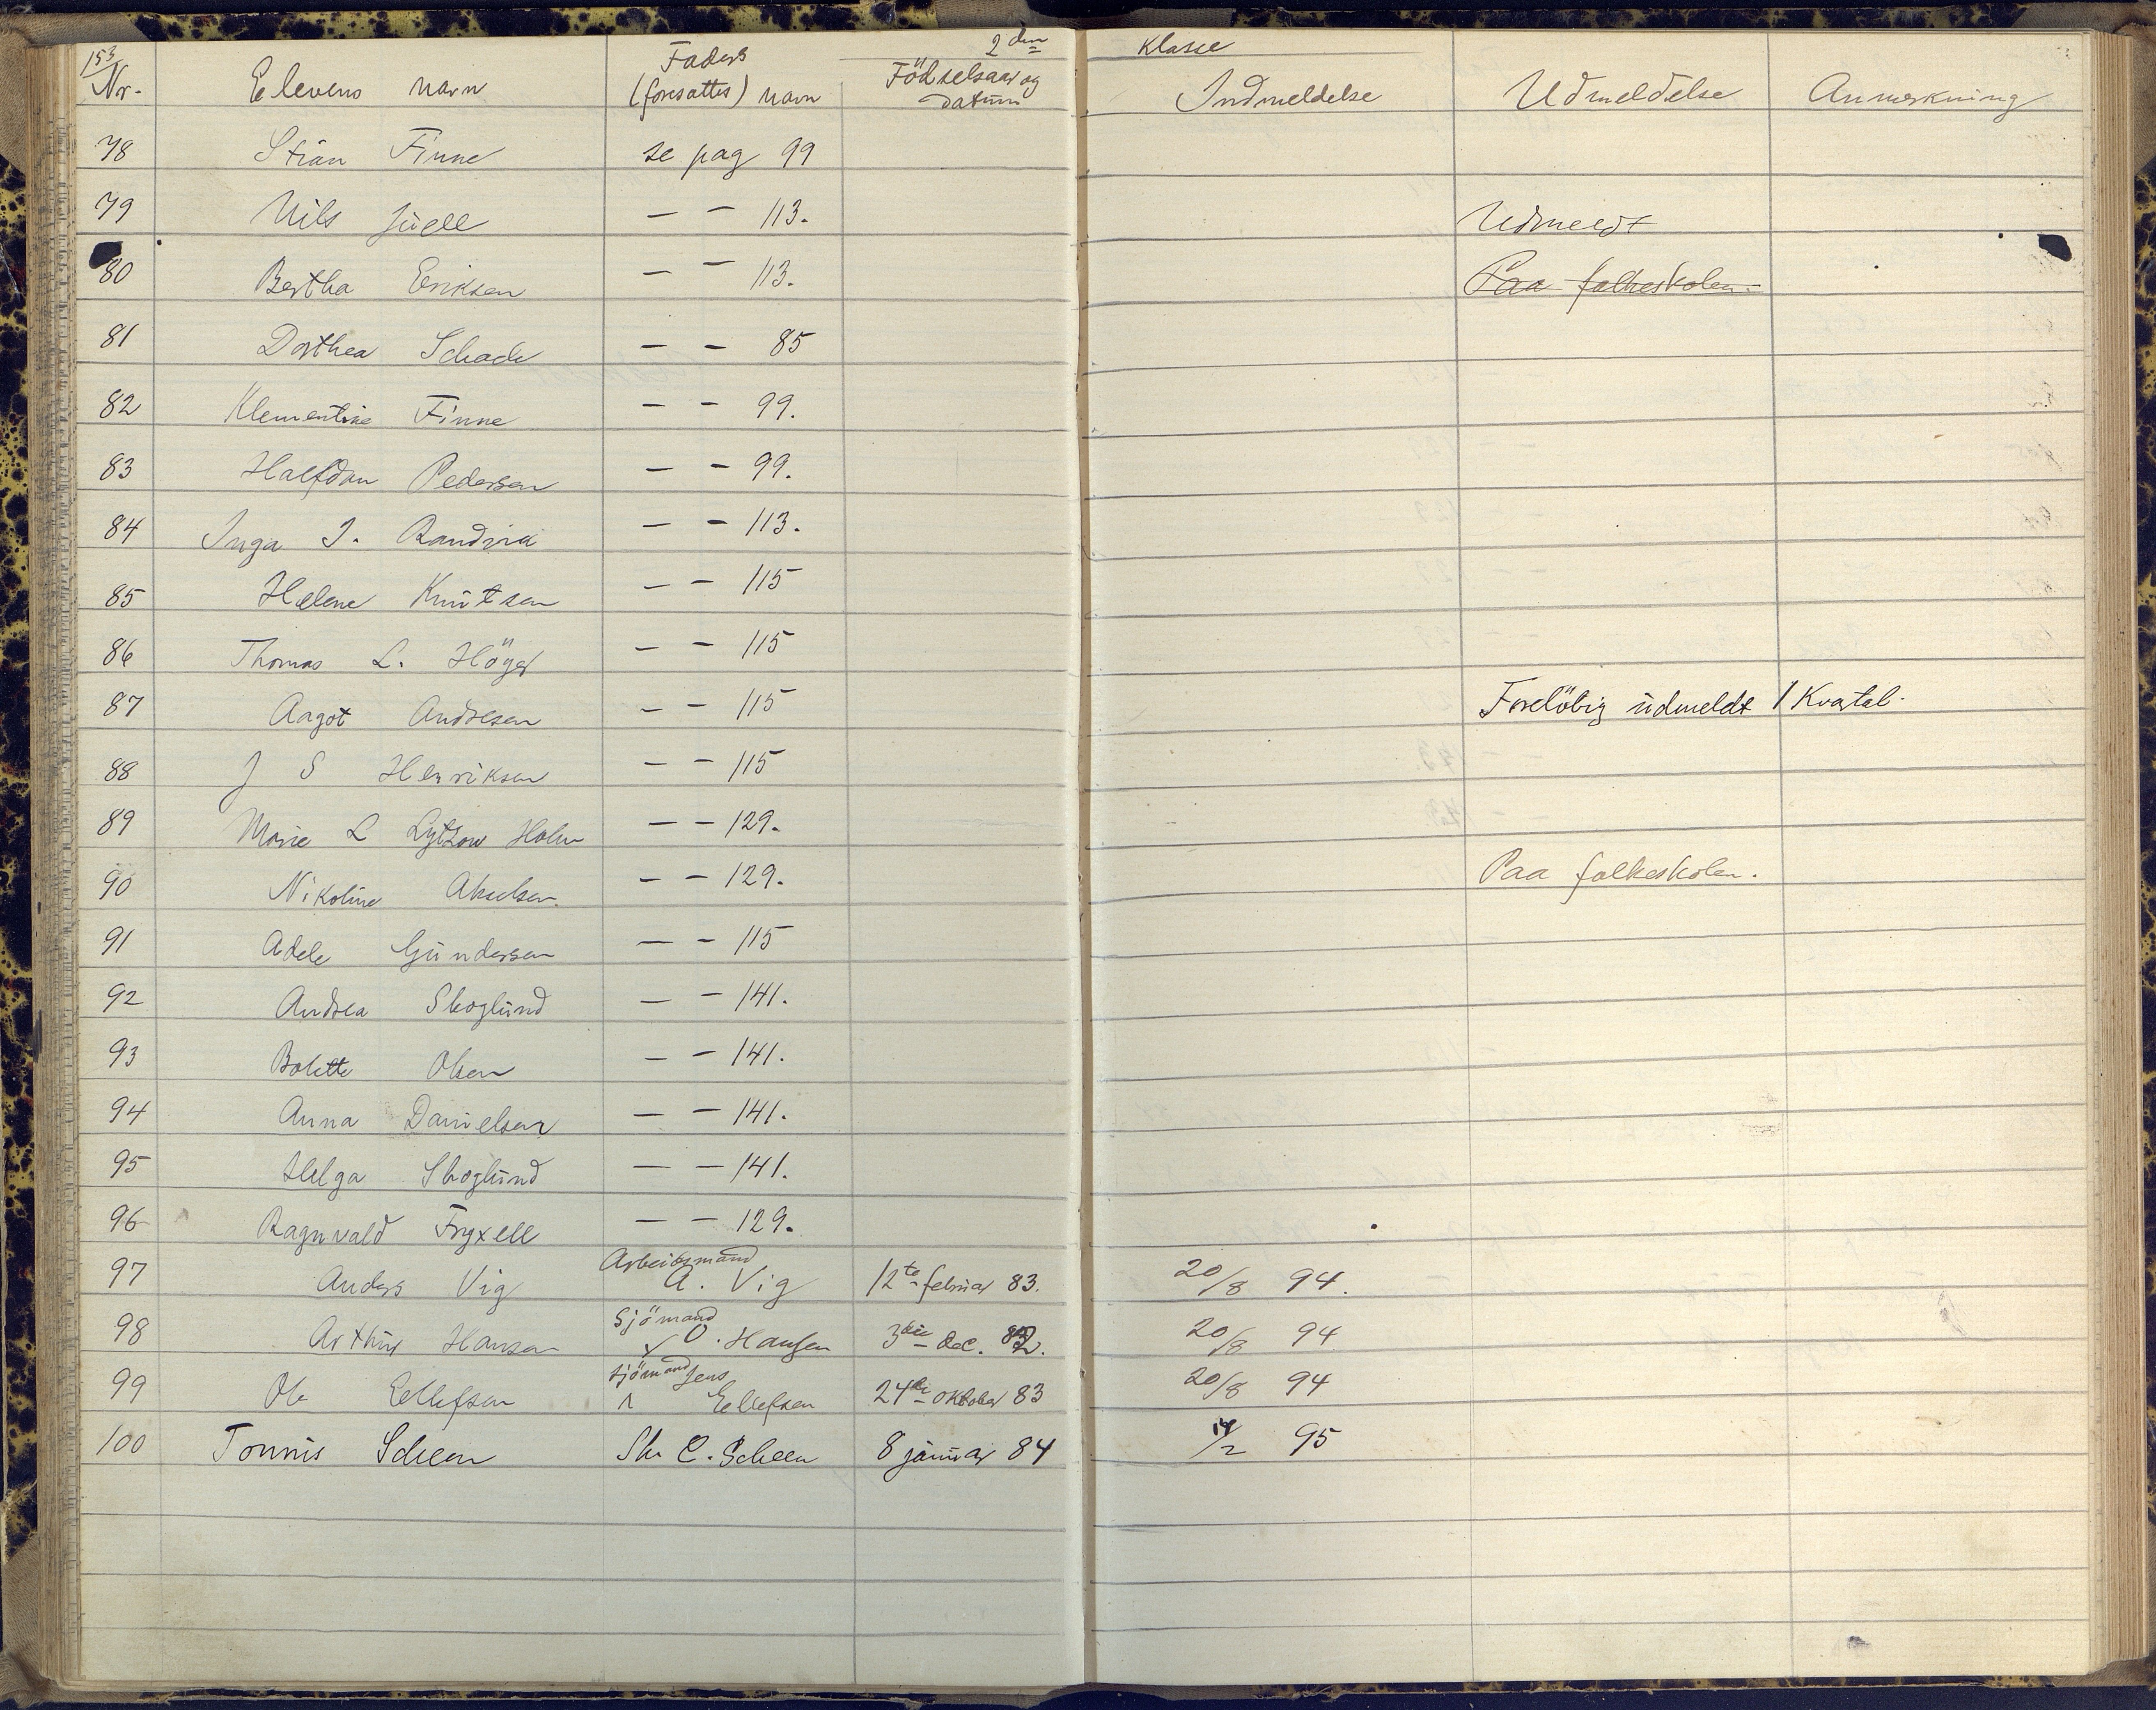 153 2den Klasse
Nr. Elevens navn Faders (foresattes) navn Födselsaar og datum Indmeldelse Udmeldelse Anmerkning
78 Stian Finne se pag 99
79 Nils Juell — — 113. Udmeldt
80 Bertha Eriksen — — 113. Paa folkeskolen.
81 Dorthea Schade — — 85
82 Klementine Finne — — 99.
83 Halfdan Pedersen — — 99.
84 Inga J. Randvik — — 113.
85 Helene Knutsen — — 115
86 Thomas L. Höyer — — 115
87 Aagot Andresen — — 115 Foreløbig udmeldt 1 Kvartal.
88 J S Henriksen — — 115
89 Marie L Lytzow Holm — — 129.
90 Nikoline Akselsen. — — 129. Paa folkeskolen.
91 Adele Gundersen — — 115
92 Andrea Skoglund — — 141.
93 Bolette Olsen — — 141.
94 Anna Danielsen — — 141.
95 Helga Skoglund — — 141.
96 Ragnvald Fryxell — — 129.
97 Anders Vig Arbeidsmand A. Vig 12te februar 83. 20/8 94.
98 Arthur Hansen Sjömand O. Hansen 3die dec. 82. 20/8 94
99 Ole Ellefsen Sjömand Jens Ellefsen 24de oktober 83 20/8 94
100 Tonnis Scheen Sk. C. Scheen 8 januar 84 14/2 95